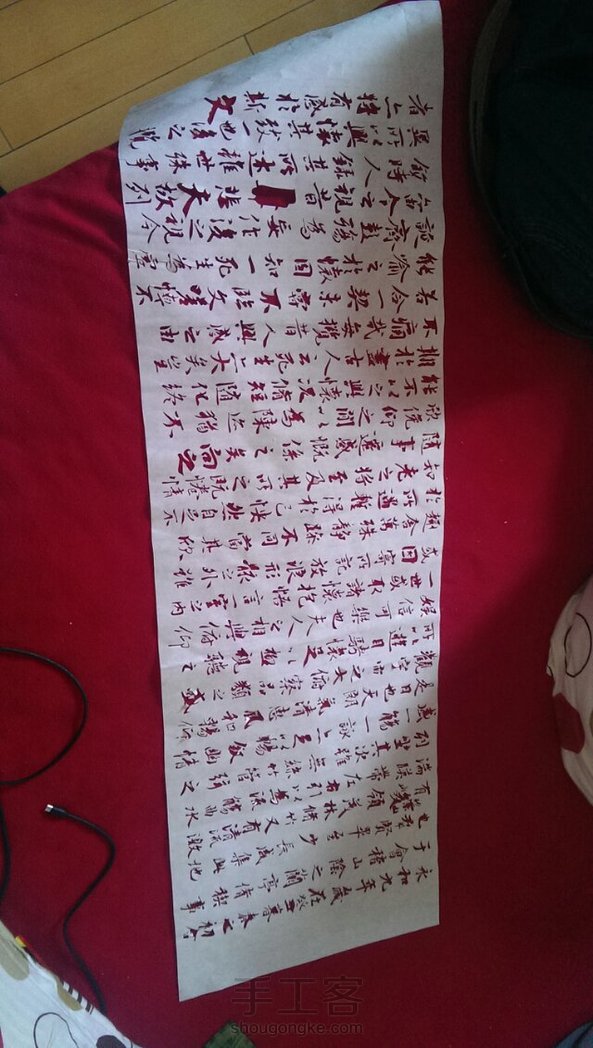 永和九年歲在癸丑暮春之初會
于會稽山陰之蘭亭脩禊事
也羣賢畢至少長咸集此地
有崇山峻領茂林脩竹又有清流激
湍暎帶左右引以為流觴曲水
列坐其次雖無絲竹管弦之
盛一觴一詠亦足以暢敘幽情
是日也天朗氣清惠風和暢仰
觀宇宙之大俯察品類之盛
所以遊目騁懷足以極視聽之
娛信可樂也夫人之相與俯仰
一世或取諸懷抱悟言一室之內
或因寄所託放浪形骸之外雖
趣舍萬殊靜躁不同當其欣
於所遇蹔得於己怏然自足不
知老之將至及其所之既惓情
隨事遷感慨係之矣向之
欣俛仰之閒以為陳跡猶不
能不以之興懷況脩短隨化終
期於盡古人云死生亦大矣豈
不痛哉每攬昔人興感之由
若合一契未嘗不臨文嗟悼不
能喻之於懷固知一死生為虛
誕齊彭殤為妄作後之視今
亦由今之視昔悲夫故列
敘時人錄其所述雖世殊事
異所以興懷其致一也後之攬
者亦將有感於斯文
手工客
shougongke.com